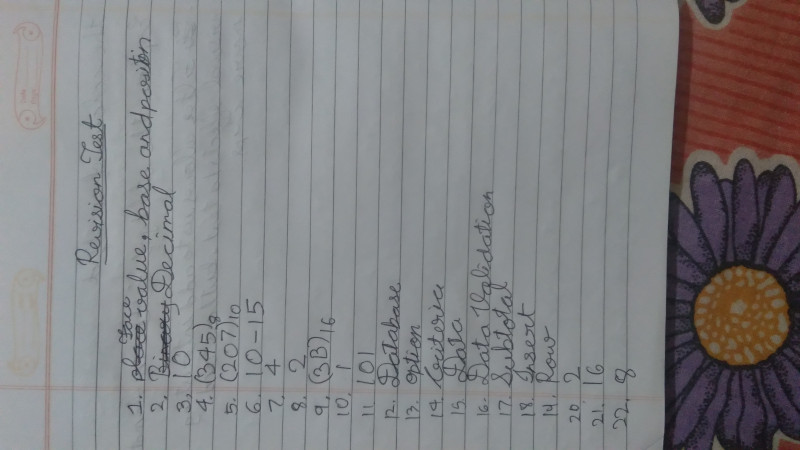 Revision Test
1. Face value, base and position
2. Decimal
3. 10
4. (345)8
5. (207)10
6. 10-15
7. 4
8. 2
9. (3B)16
10. 1
11. 101
12. Database
13. option
14. Criteria
15. Data
16. Data Validation
17. Subtotal
18. Insert
19. Row
20. 2
21. 16
22. 8